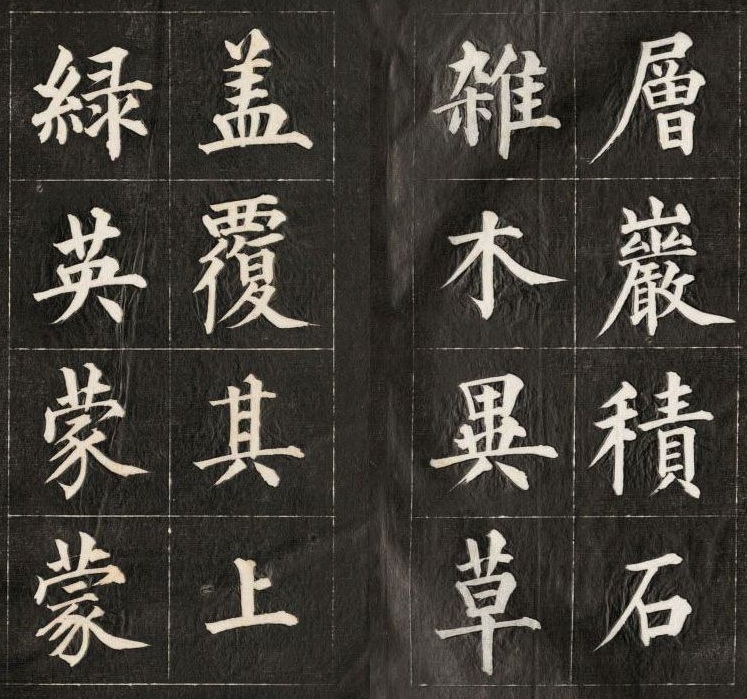 層巖積石
雑木異草
盖覆其上
緑英蒙蒙